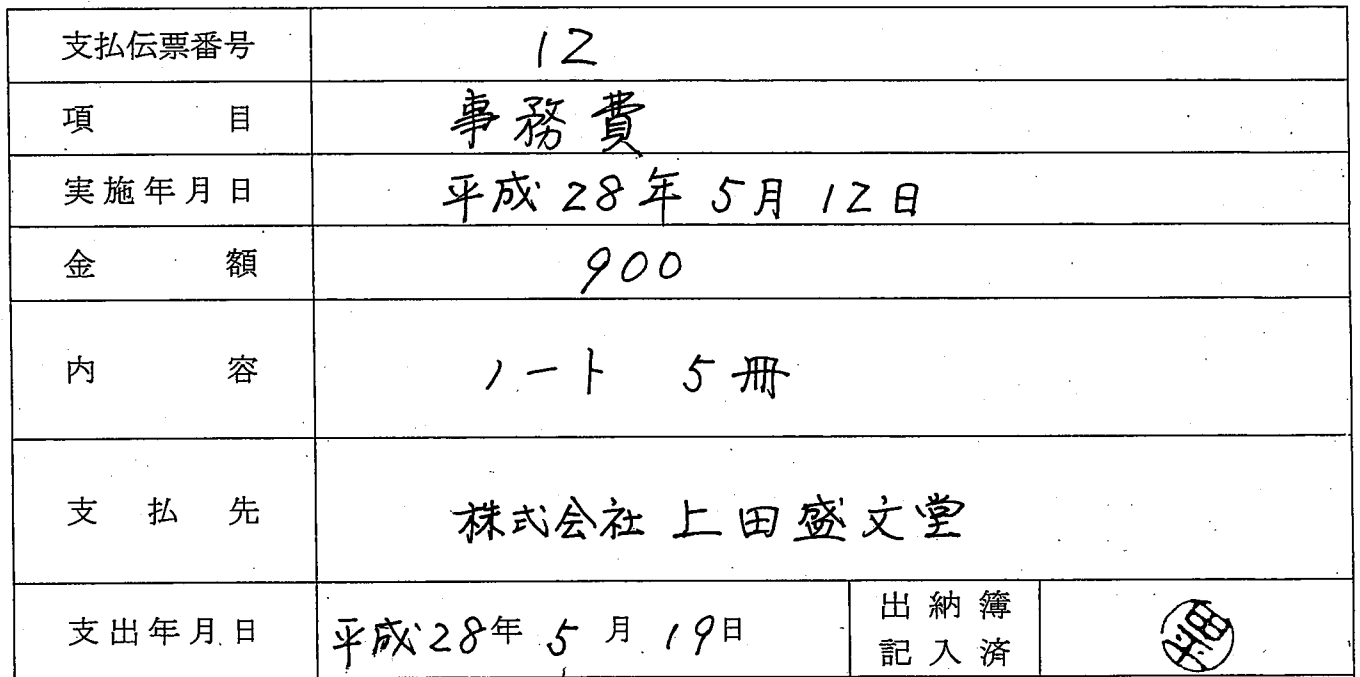 支払伝票番号 12
項目 事務費
実施年月日 平成28年5月12日
金額 900
内容 ノート 5冊
支払先 株式会社 上田盛文堂
支出年月日 平成28年5月19日 出納簿
記入済